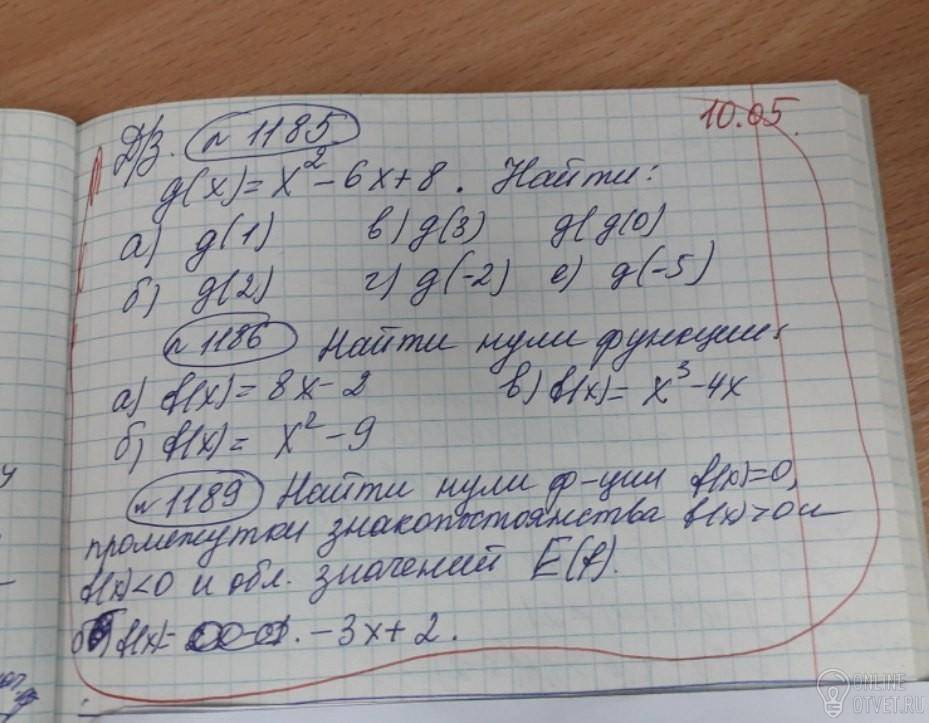 10.05.
Д/З. №1185
g(x)= x²-6x+8. Найти:
а) g(1) в) g(3) д( g(0)
б) g(2) г) g(-2) е) g(-5)
№1186 Найти нули функции:
а) f(x)= 8x-2 в) f(x)= x³-4x
б) f(x)= x²-9
№1189 Найти нули ф-ции f(x)=0,
промежутки знакопостоянства f(x)>0 и
f(x)<0 и обл. значений E(f).
б) f(x)= -3x+2.
ONLINE
OTVET.RU